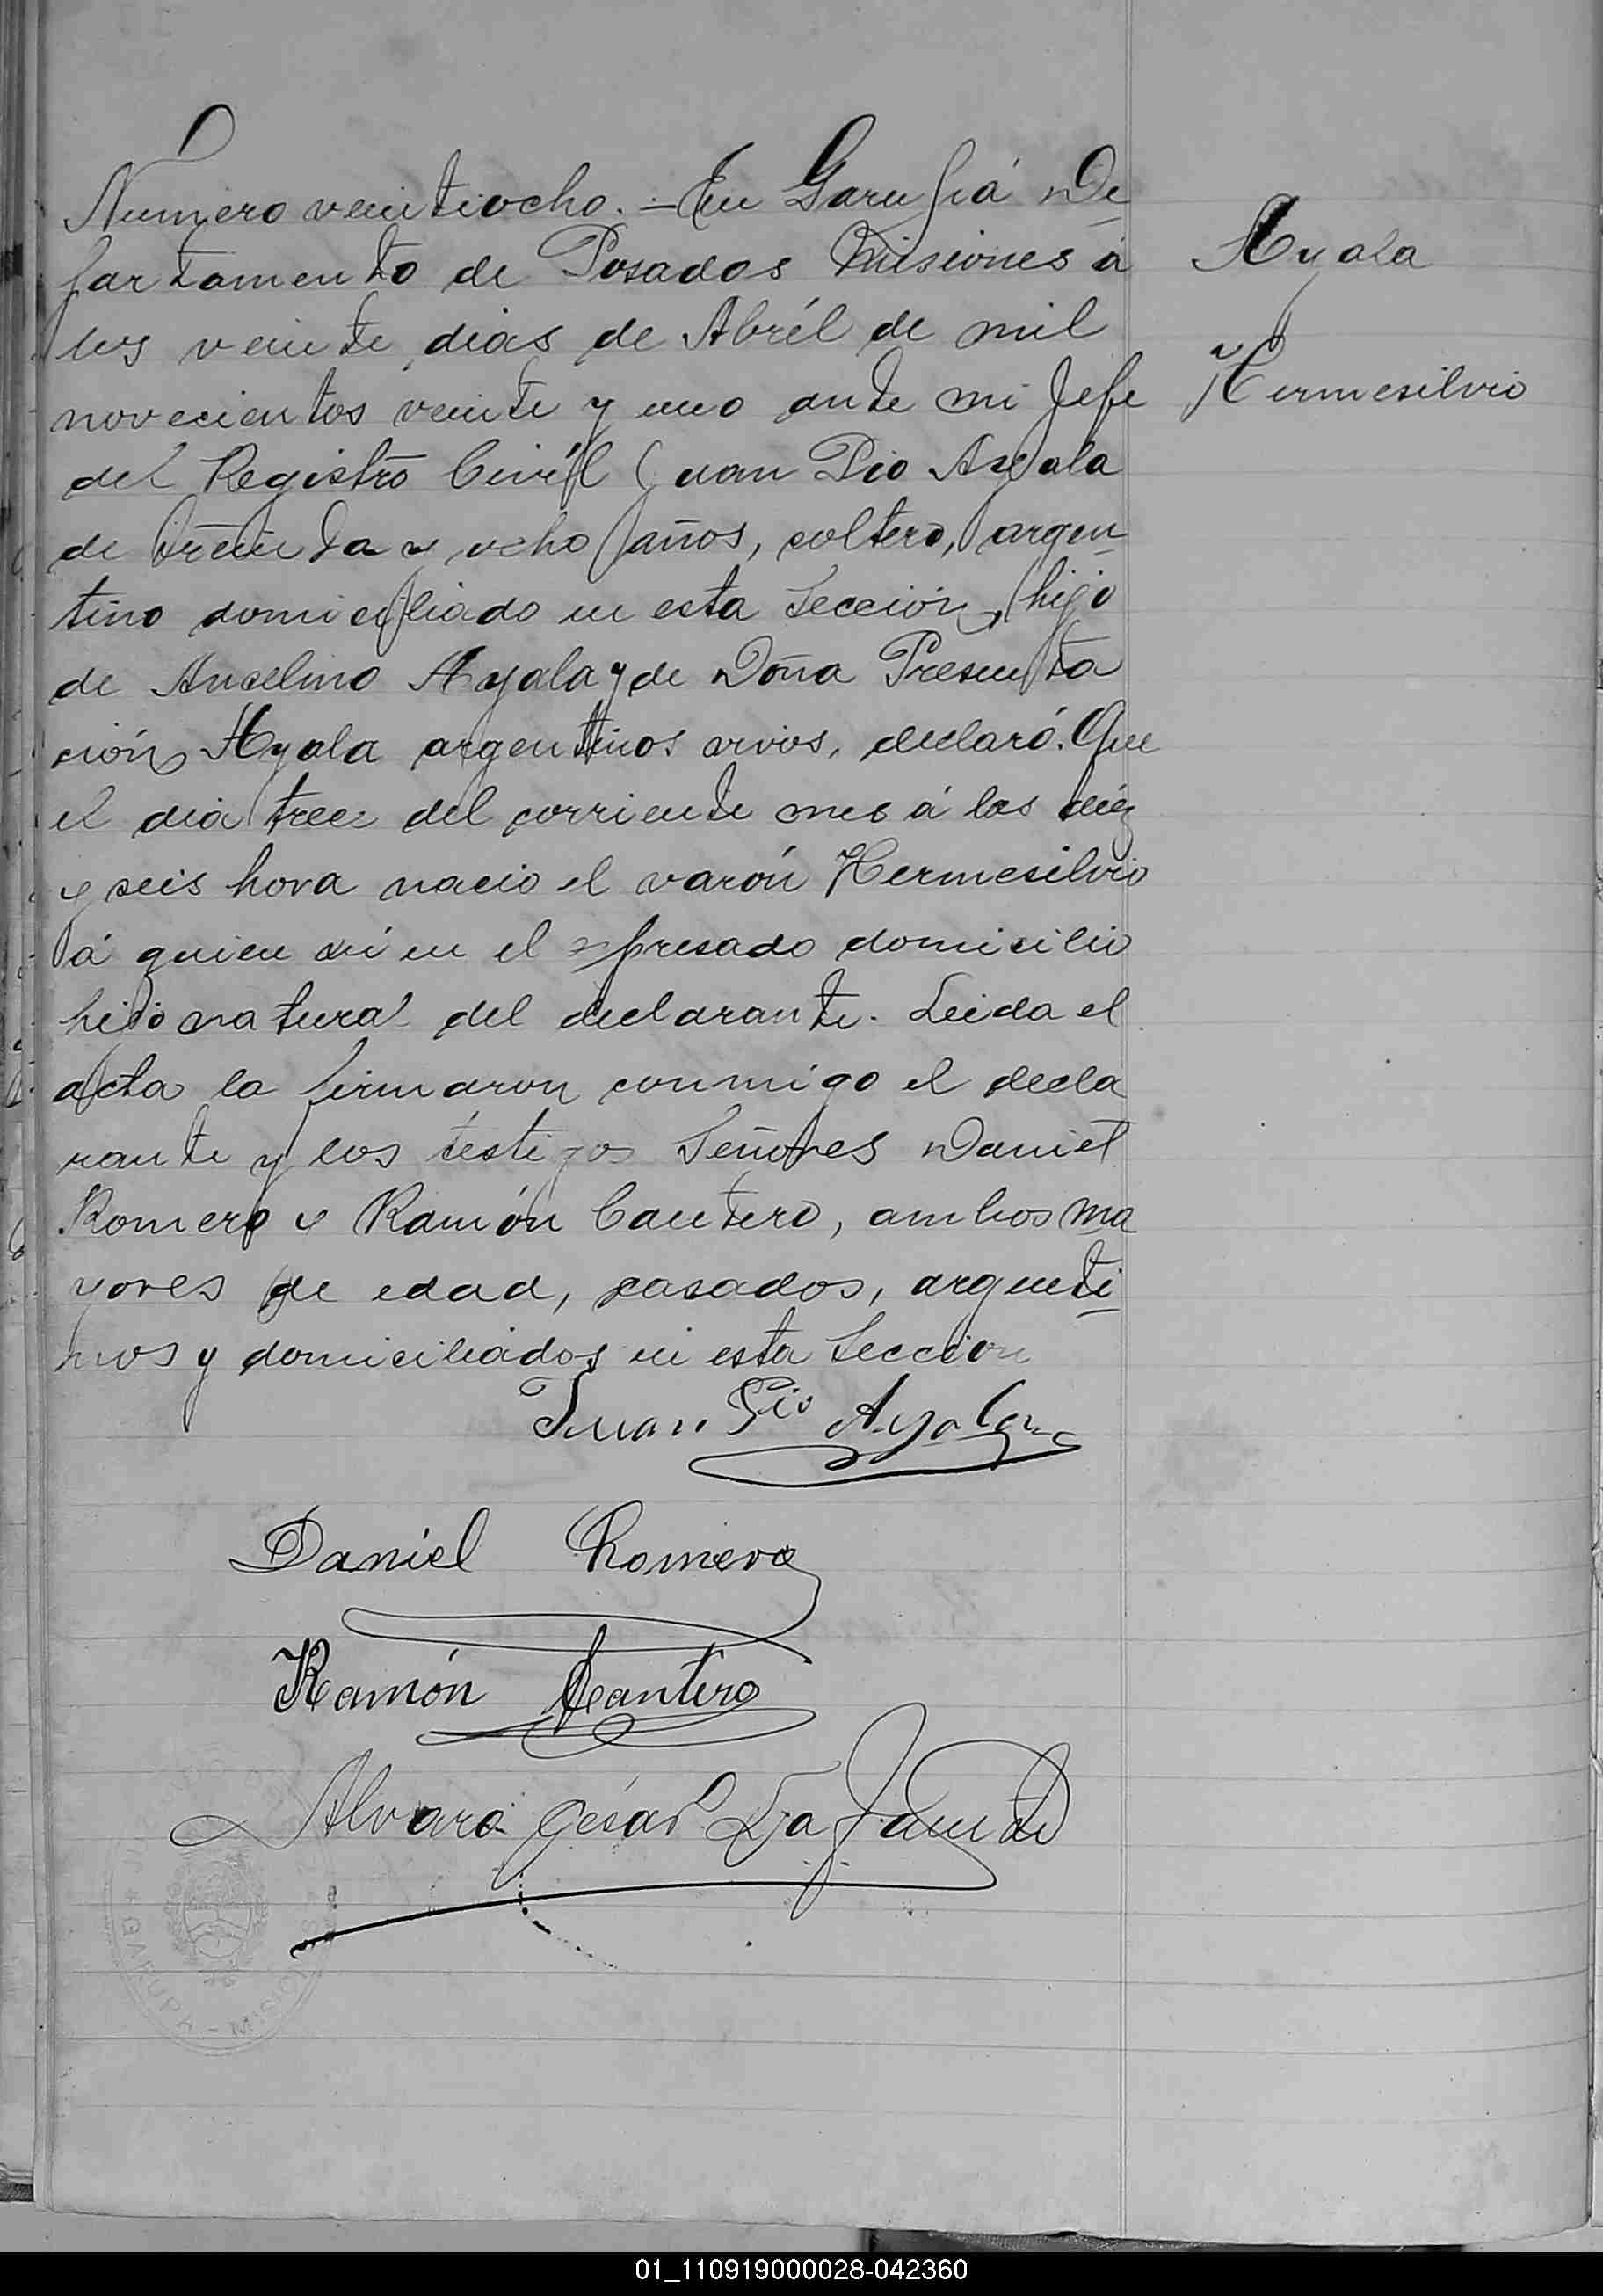 Numero veintiocho. - En Garupá De
partamento de Posadas Misiones á
los veinte dias de Abrél de mil
novecientos veinte y uno ante mi Jefe
del Registro Civil Juan Pio Ayala
de treinta y ocho años, soltero, argen
tino domiciliado en esta Sección, hijo
de Ancelino Ayala y de Doña Presenta
ción Ayala argentinos vivos, declaró. Que
el dia trece del corriente mes á las diéz
y seis hora nacio el varón Hermesilvio
á quien ví en el espresado domicilio
hijo natural del declarante. Leida el
acta la firmaron conmigo el decla
rante y los testigos Señores Daniel
Romero y Ramón Cantero, ambos ma
yores de edad, casados, argenti
nos y domiciliados en esta Seccion
Ayala
Hermesilvio
Juan Pio Ayala
Daniel Romero
Ramón Cantero
Alvaro César
GARUPA - MISIONES
01_110919000028-042360